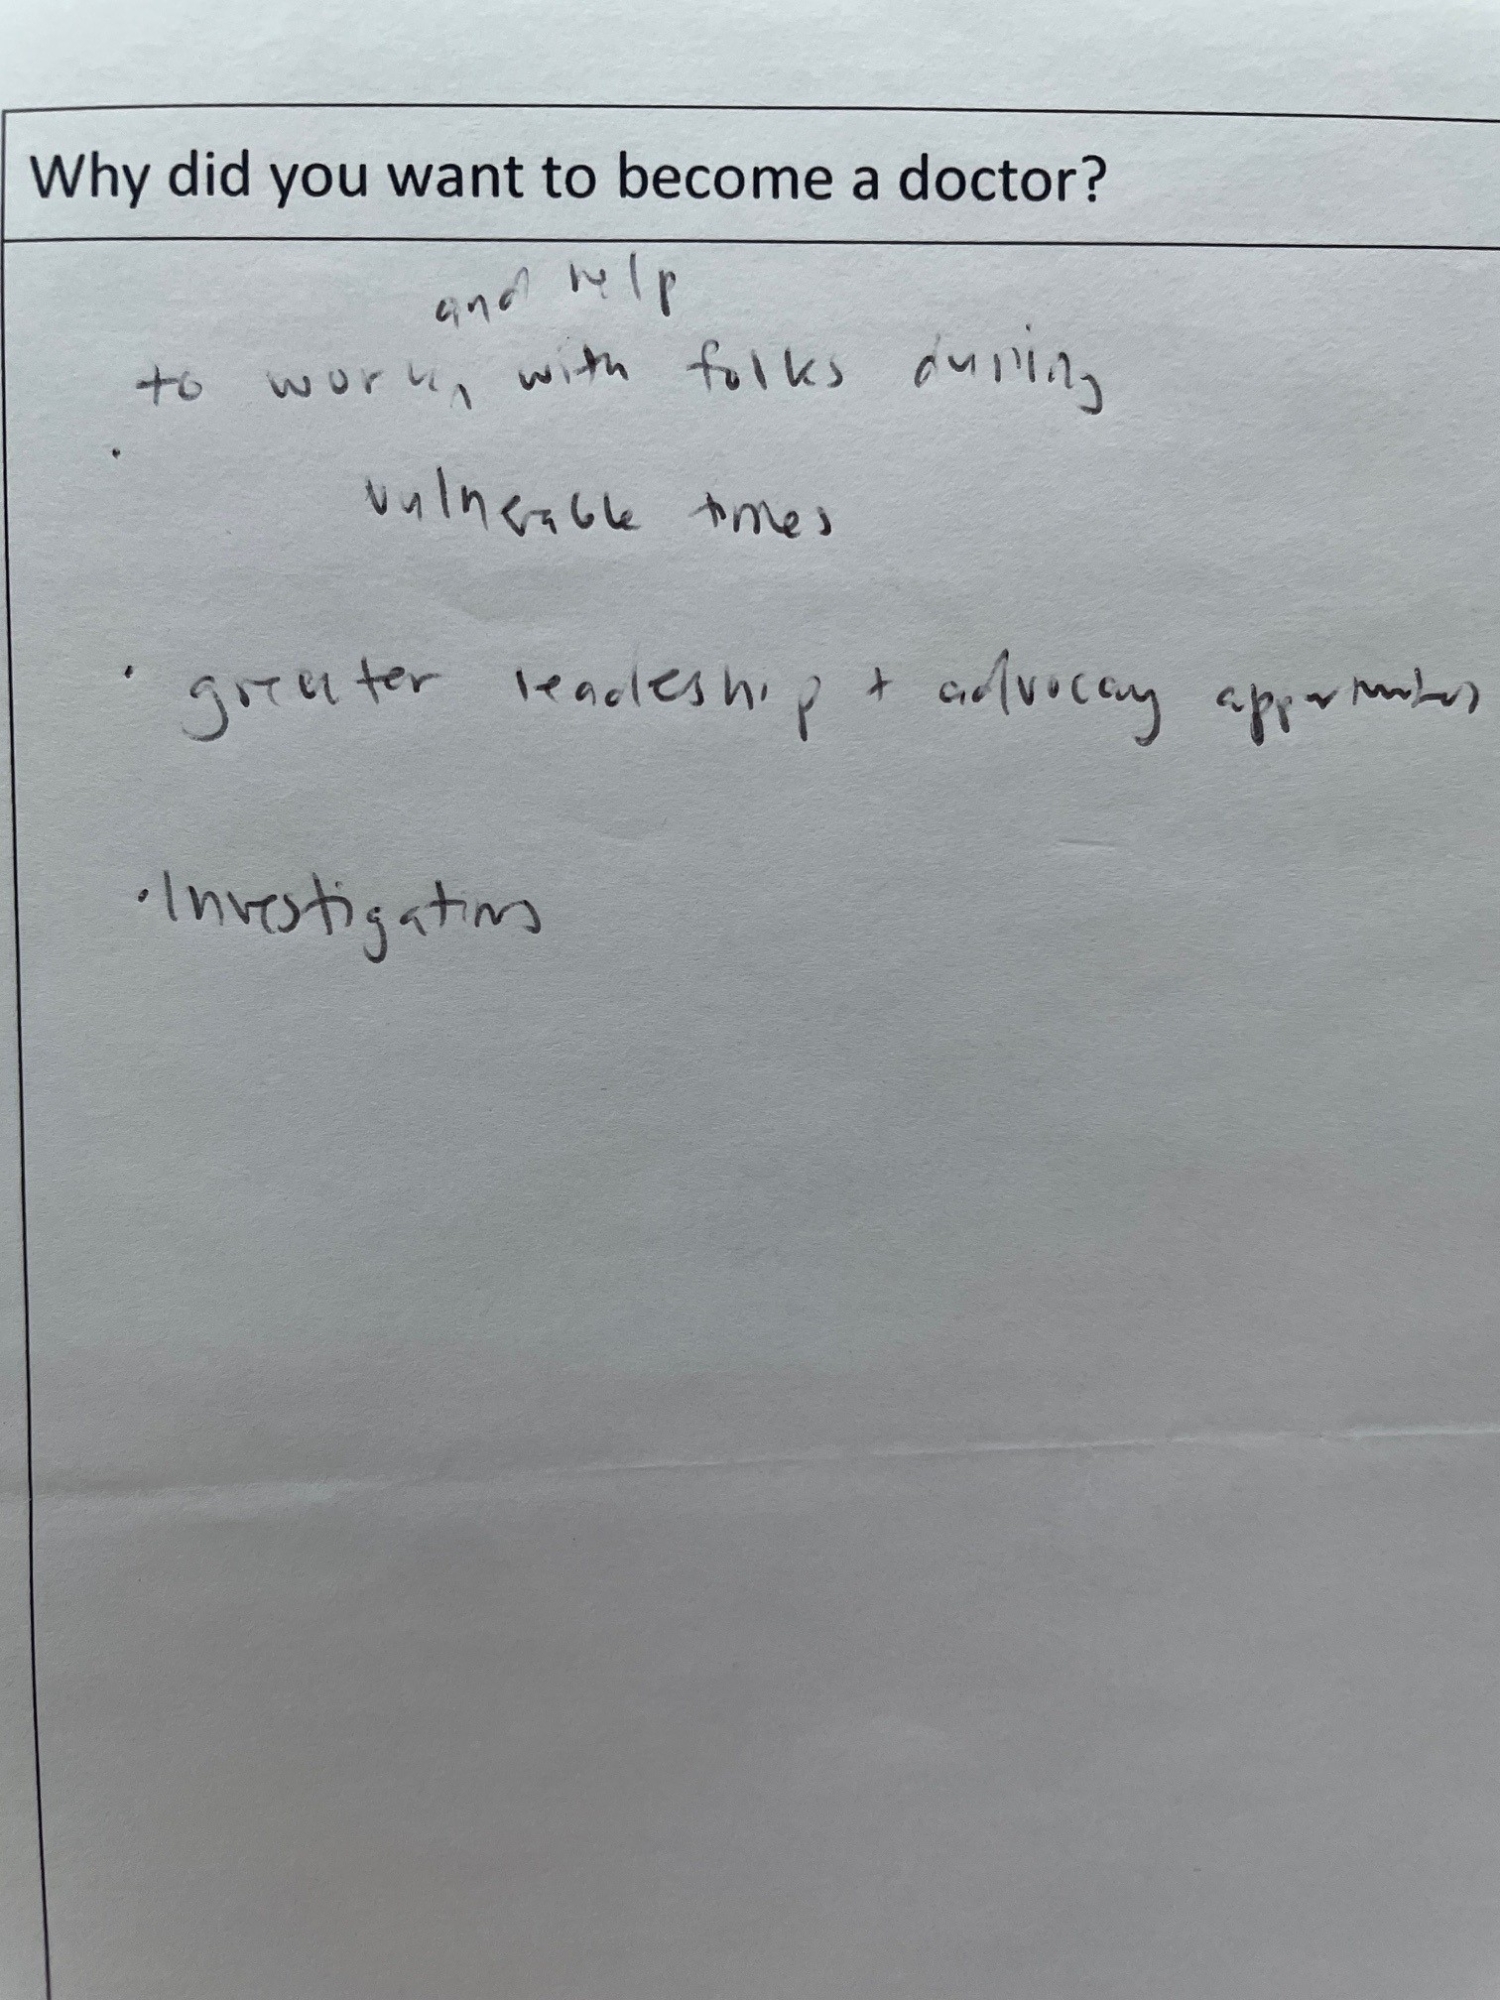 Why did you want to become a doctor?
and help
to work^ with folks during
vulnerable times
· greater leadeship + advocacy
· Investigations